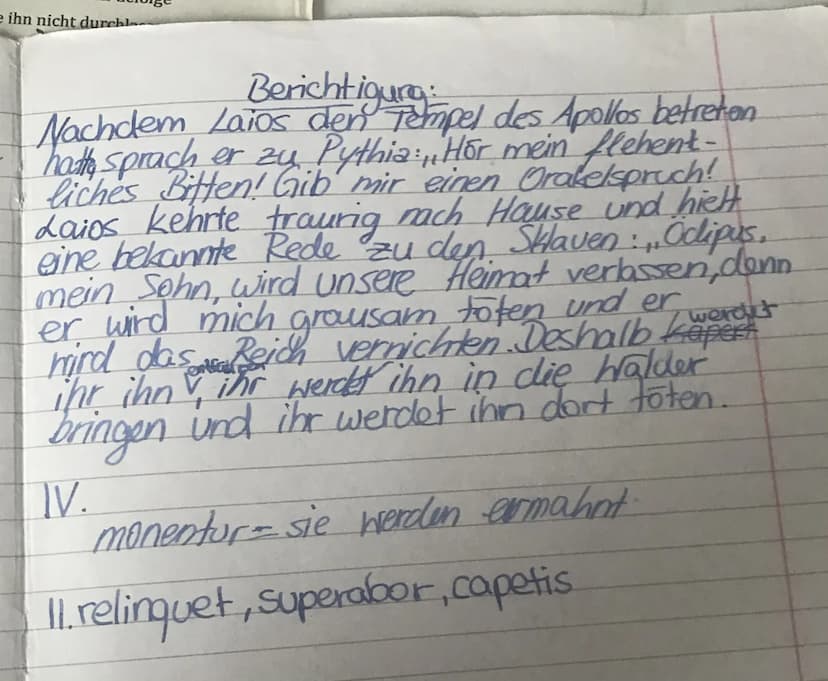 e ihn nicht
Berichtigung:
Nachdem Laios den Tempel des Apollos betreten
hatte sprach er zu Pythia: „Hör mein flehent-
liches Bitten! Gib mir einen Orakelspruch!
Laios kehrte traurig nach Hause und hielt
eine bekannte Rede zu den Sklaven: „Ödipus,
mein Sohn, wird unsere Heimat verlassen, denn
er wird mich grausam töten und er
wird das Reich vernichten. Deshalb werdet
ihr ihn, ihr werdet ihn in die Wälder
bringen und ihr werdet ihn dort töten.
IV.
monentur = sie werden ermahnt.
II. relinquet, superabor, capetis